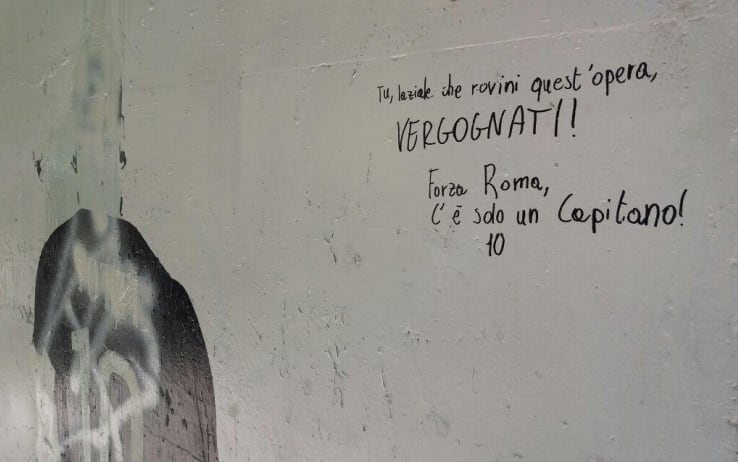 Tu, laziale che rovini quest'opera,
VERGOGNATI!
Forza Roma,
C'è solo un Capitano!
10